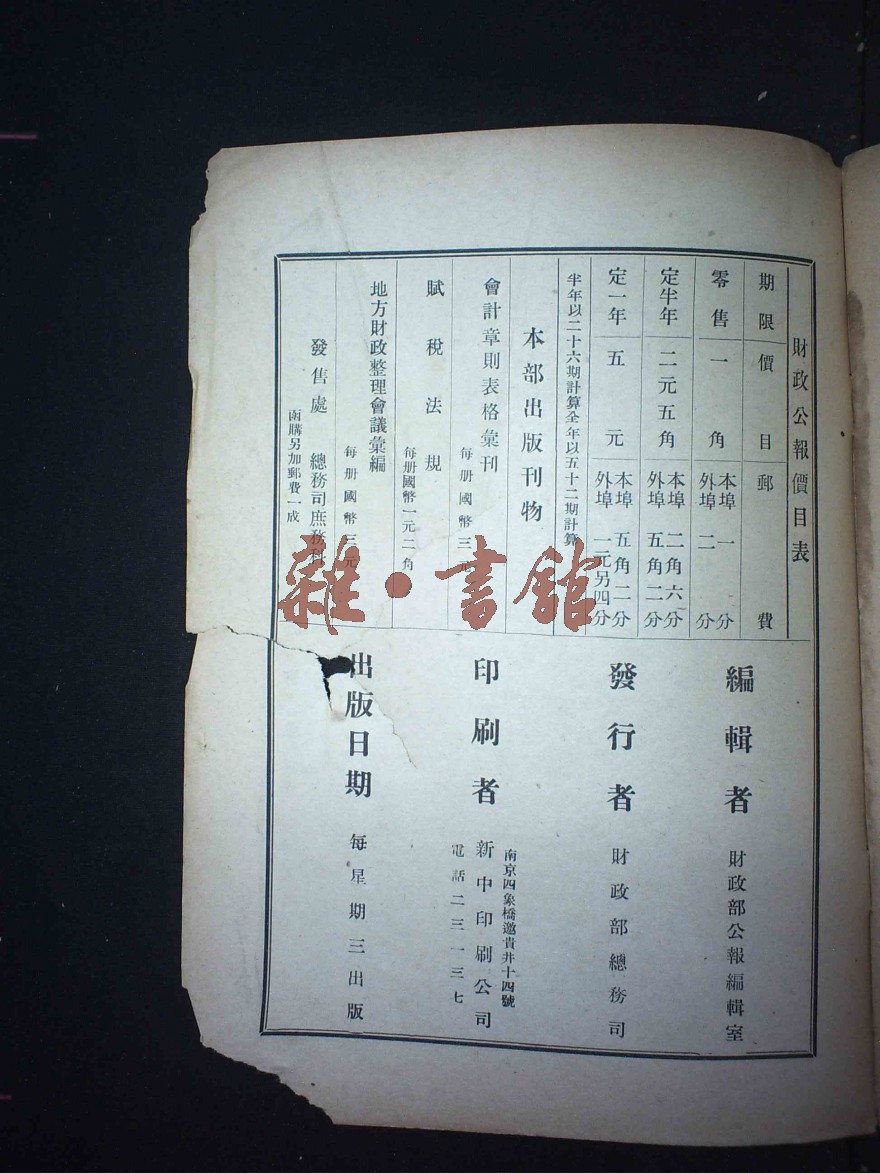 財政公報價目表
期限 價目 郵費
零售 一角 本埠 一分
外埠 二分
定半年 二元五角 本埠 二角六分
外埠 五角二分
定一年 五元 本埠 五角二分
外埠 一元另四分
半年以二十六期計算全年以五十二期計算
本部出版刊物
會計章則表格彙刊
每册國幣三
賦稅法規
每册國幣一元二角
地方財政整理會議彙編
每册國幣三元
發售處 總務司庶務科
函購另加郵費一成
編輯者 財政部公報編輯室
發行者 財政部總務司
南京四象橋邀貴井十四號
印刷者 新中印刷公司
電話二三一三七
出版日期 每星期三出版
雜·書館